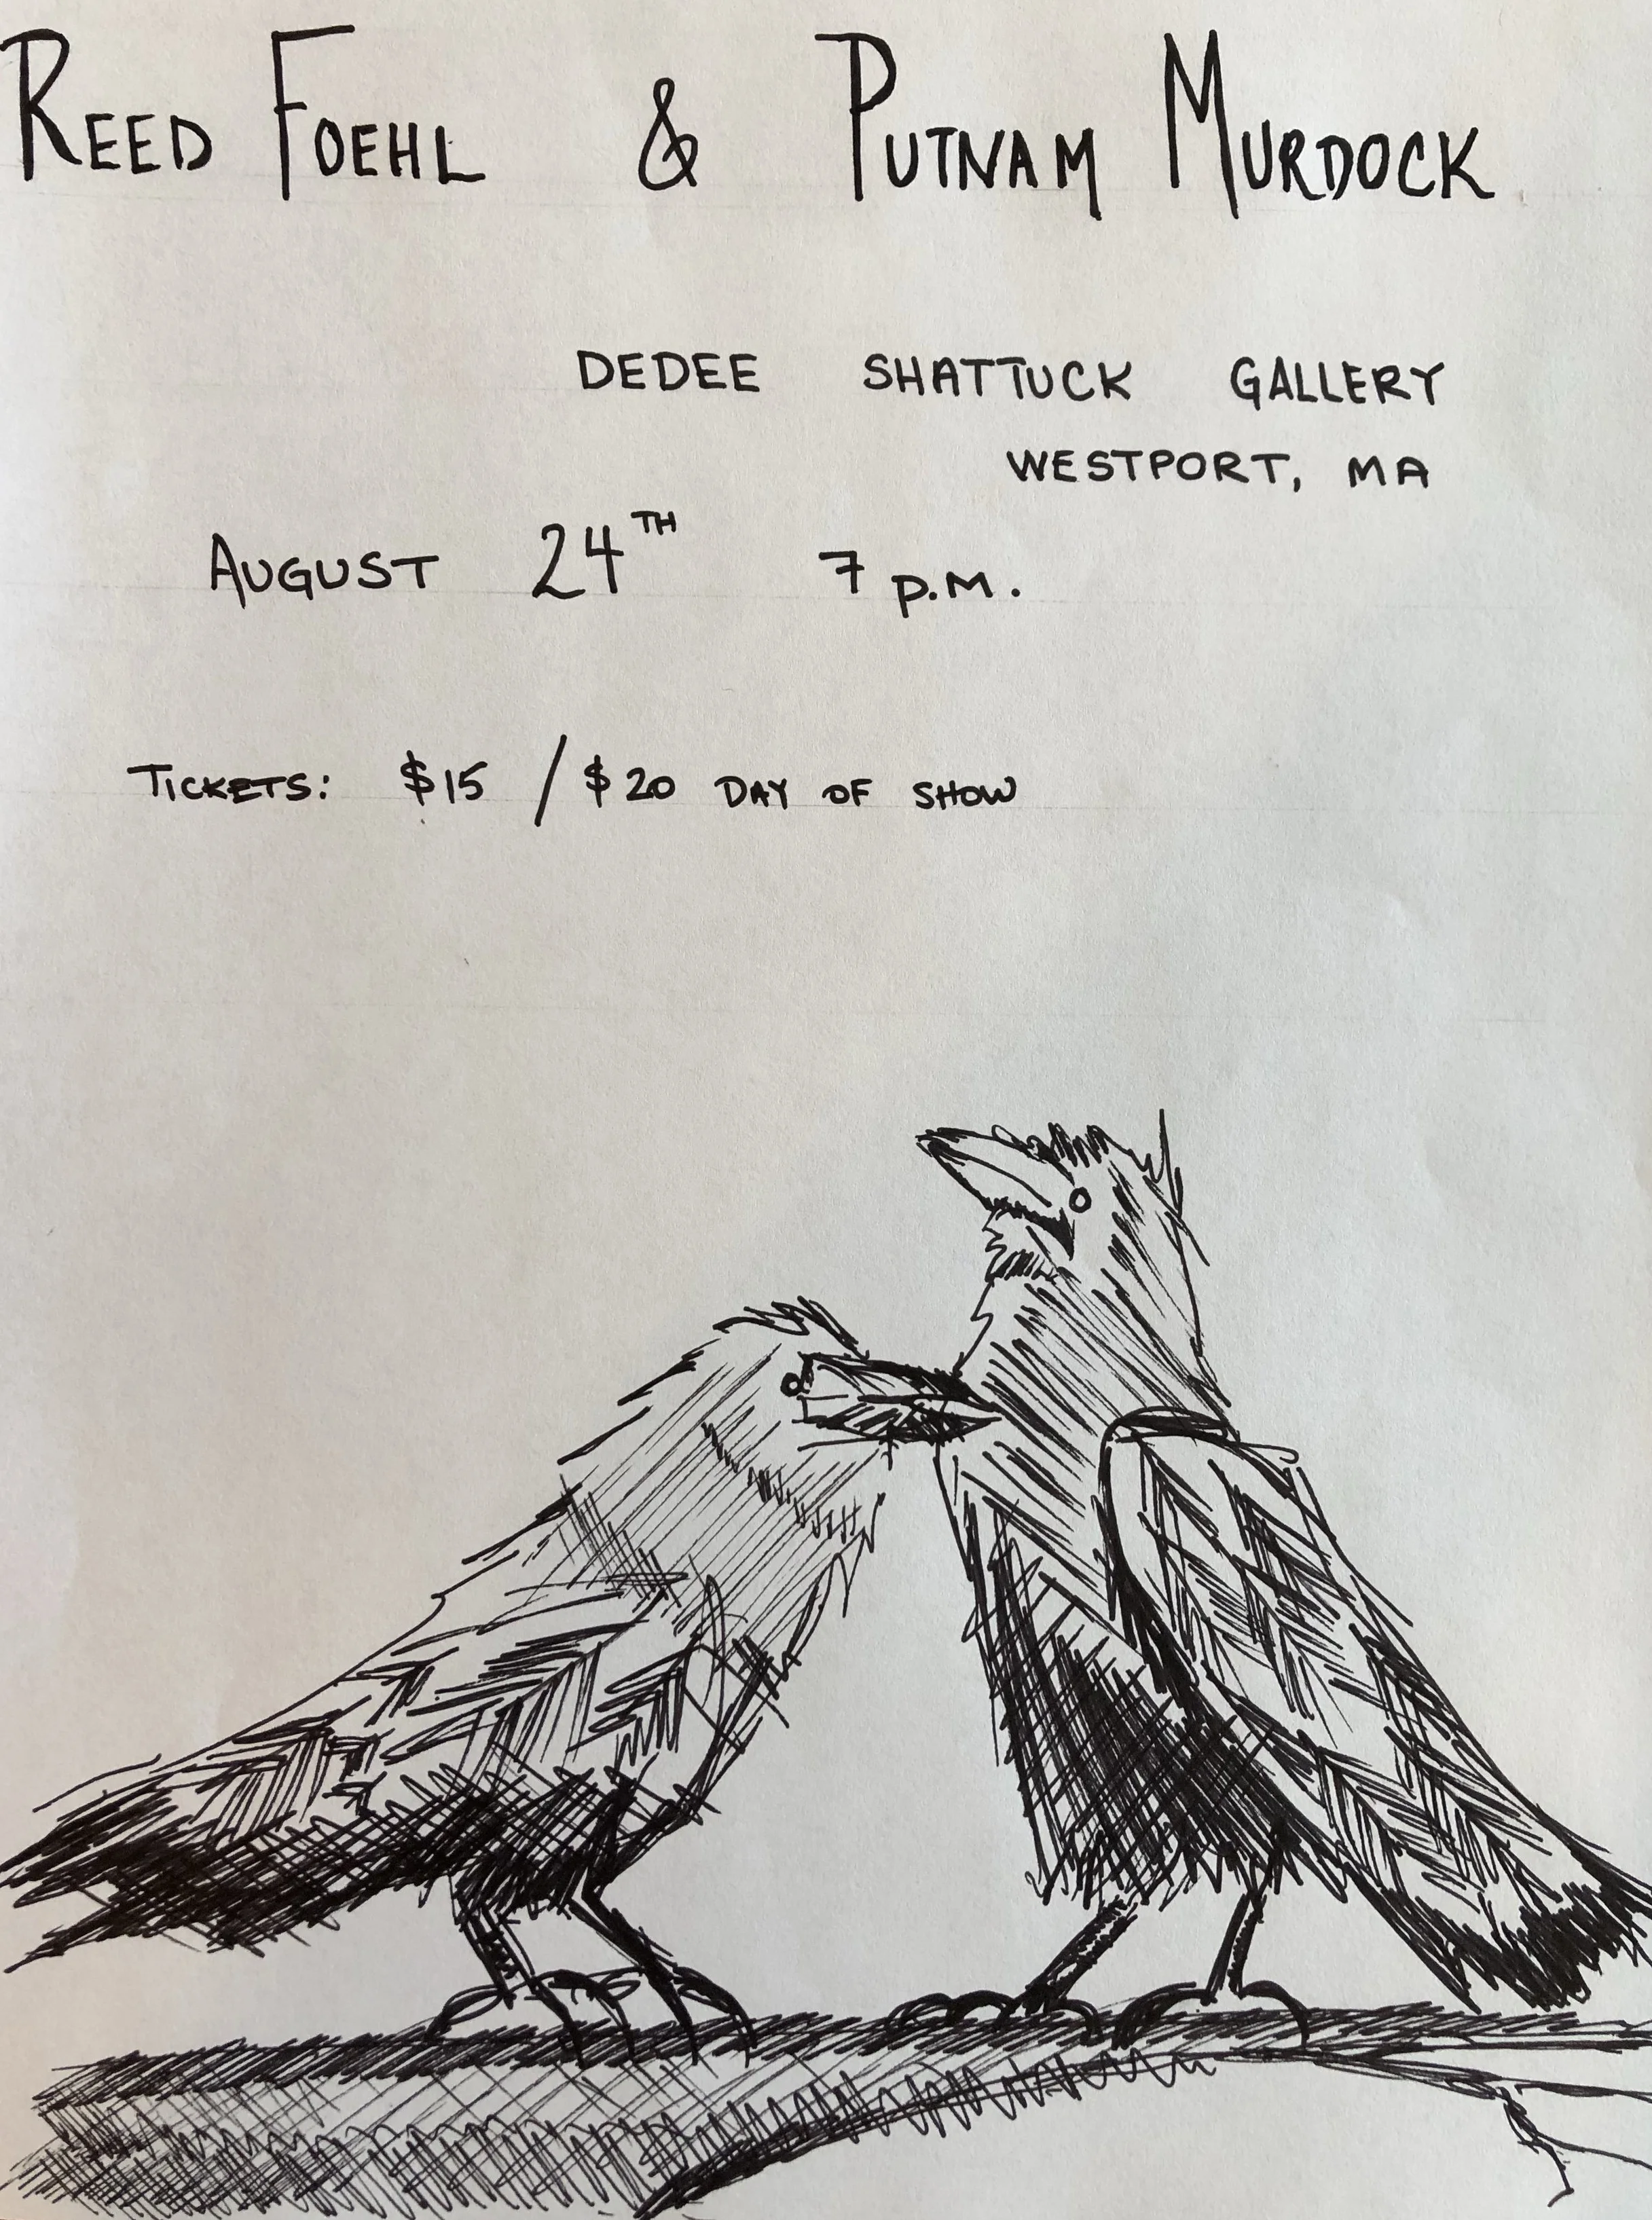 REED FOEHL & PUTNAM MURDOCK
DEDEE SHATTUCK GALLERY
WESTPORT, MA
AUGUST 24TH 7 P.M.
TICKETS: $15 / $20 DAY OF SHOW